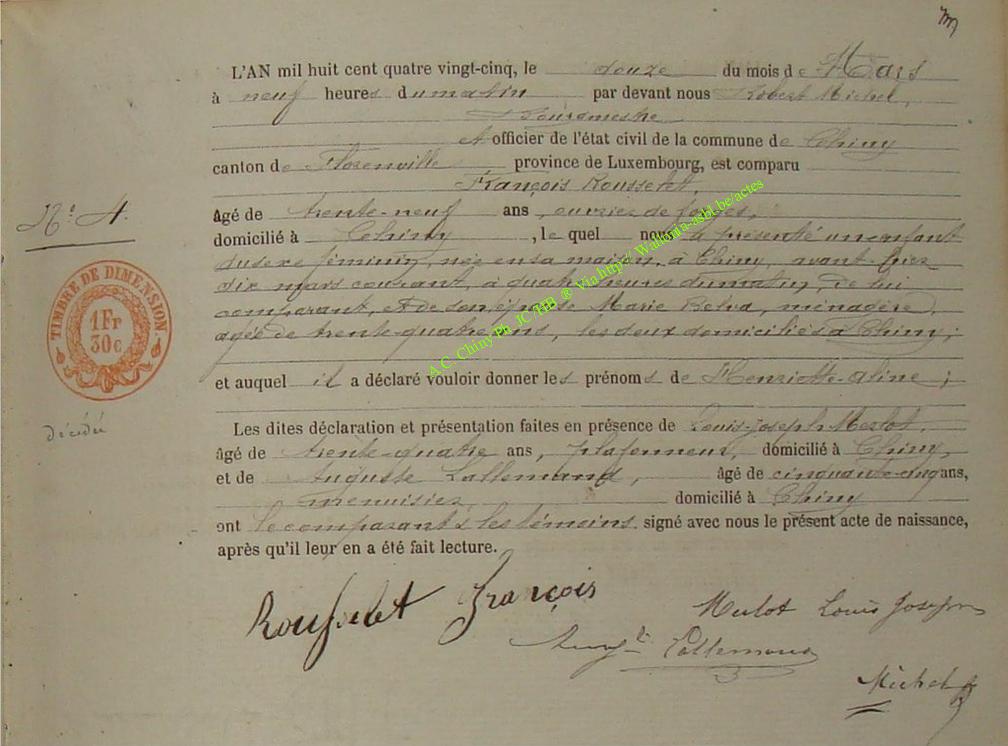 L'AN mil huit cent quatre vingt-cinq, le douze du mois de Mars
à neuf heures du matin par devant nous Robert Michel,
Bourgmestre
et officier de l'état civil de la commune de Chiny
canton de Florenville province de Luxembourg, est comparu
François Rousselet,
N° 4.
âgé de trente-neuf ans, ouvrier de forges,
domicilié à Chiny, le quel nous a présenté un enfant
du sexe féminin, née en sa maison, à Chiny, avant-hier
dix mars courant, à quatre heures du matin, de lui
comparant, et de son épouse Marie Belva, ménagère,
agée de trente-quatre ans, les deux domiciliés à Chiny;
TIMBRE DE DIMENSION
1Fr
30c
et auquel il a déclaré vouloir donner les prénoms de Henriette-Aline;
décédée
Les dites déclaration et présentation faites en présence de Louis-Joseph Merlot,
âgé de trente-quatre ans, plafonneur, domicilié à Chiny,
et de Auguste Lallemand, âgé de cinquante-cinq ans,
menuisier, domicilié à Chiny
ont le comparant & les témoins signé avec nous le présent acte de naissance,
après qu'il leur en a été fait lecture.
Rousselet François
Merlot Louis Joseph
Augte Lallemand
Michel R
A.C. Chiny Ph JC/HB ® Via http// Wallonia-asbl.be/actes